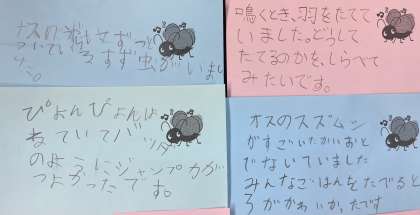 ナスの
ついている すず虫がいまし
た。
鳴くとき、羽をたてて
いました。どうして
たてるのかを、しらべて
みたいです。
ぴょんぴょんは
ねていてバッタ
のようにジャンプ力が
つよかったです。
オスのスズムシ
がすごいたかいおと
でないていました
みんなごはんをたべると
ろがかわいかったです